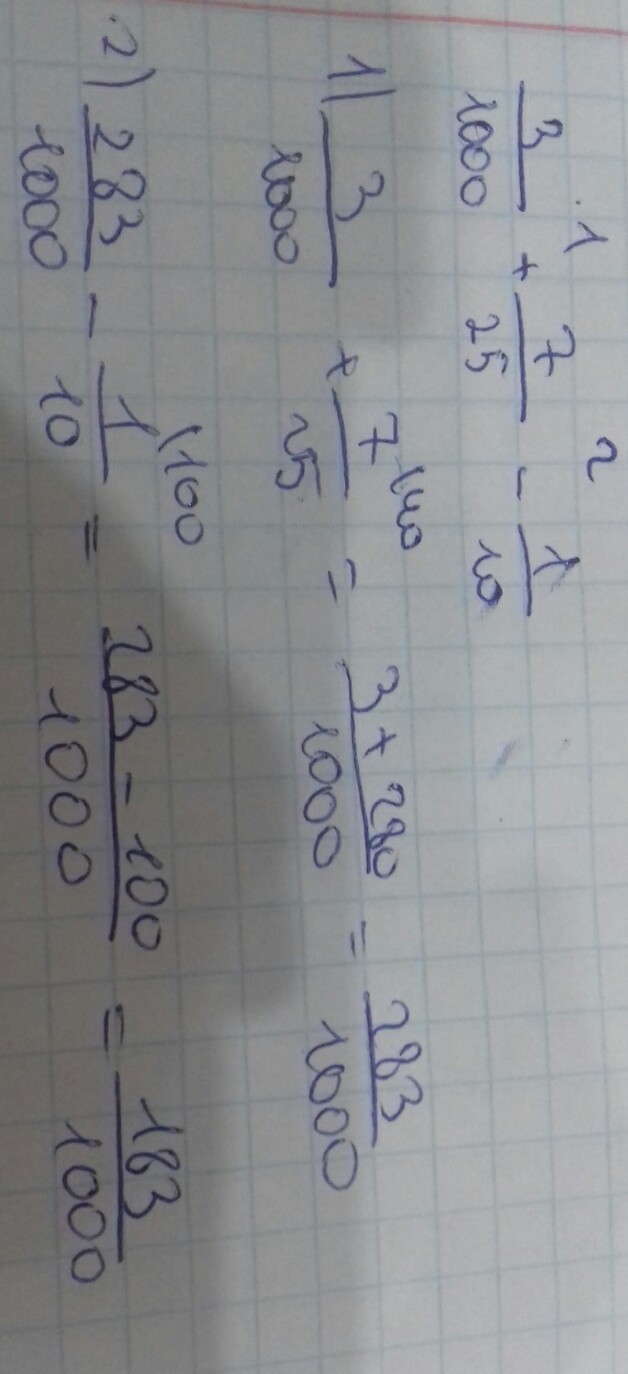 1 2
3/1000 + 7/25 - 1/10
1) 3/1000 + 7\40/25 = 3+280/1000 = 283/1000
2) 283/1000 - 1\100/10 = 283-100/1000 = 183/1000